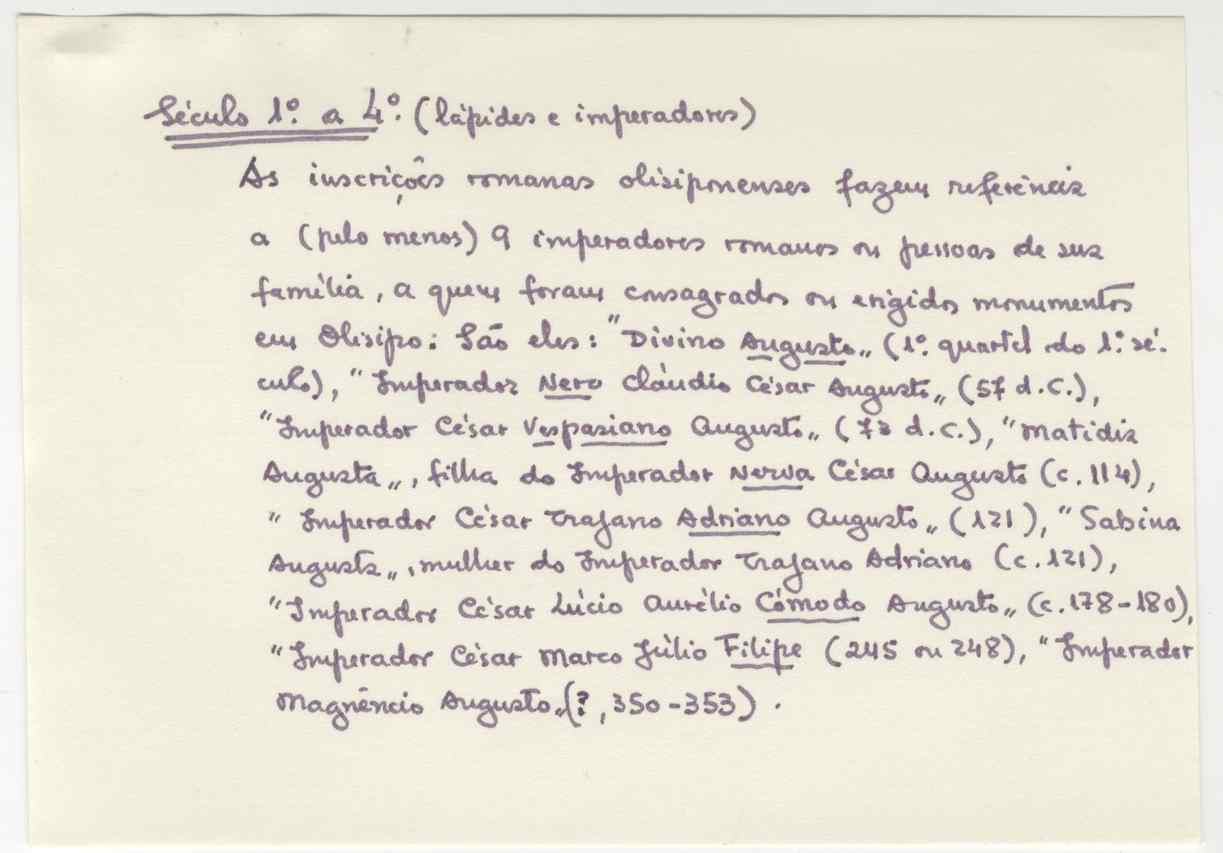 Século 1º. a 4º. (lápides e imperadores)
As inscrições romanas olisiponenses fazem referência
a (pelo menos) 9 imperadores romanos ou pessoas de sua
família, a quem foram consagrados ou erigidos monumentos
em Olisipo: São eles: "Divino Augusto„ (1º. quartel do 1º. sé-
culo), "Imperador Nero Cláudio César Augusto„ (57 d.C.),
"Imperador César Vespasiano Augusto„ (73 d.C.), "Matidia
Augusta„, filha do Imperador Nerva César Augusto (c. 114),
"Imperador César Trajano Adriano Augusto„ (121), "Sabina
Augusta„, mulher do Imperador Trajano Adriano (c. 121),
"Imperador César Lúcio Aurélio Cómodo Augusto„ (c. 178-180),
"Imperador César Marco Júlio Filipe (245 ou 248), "Imperador
Magnêncio Augusto„ (?, 350-353).